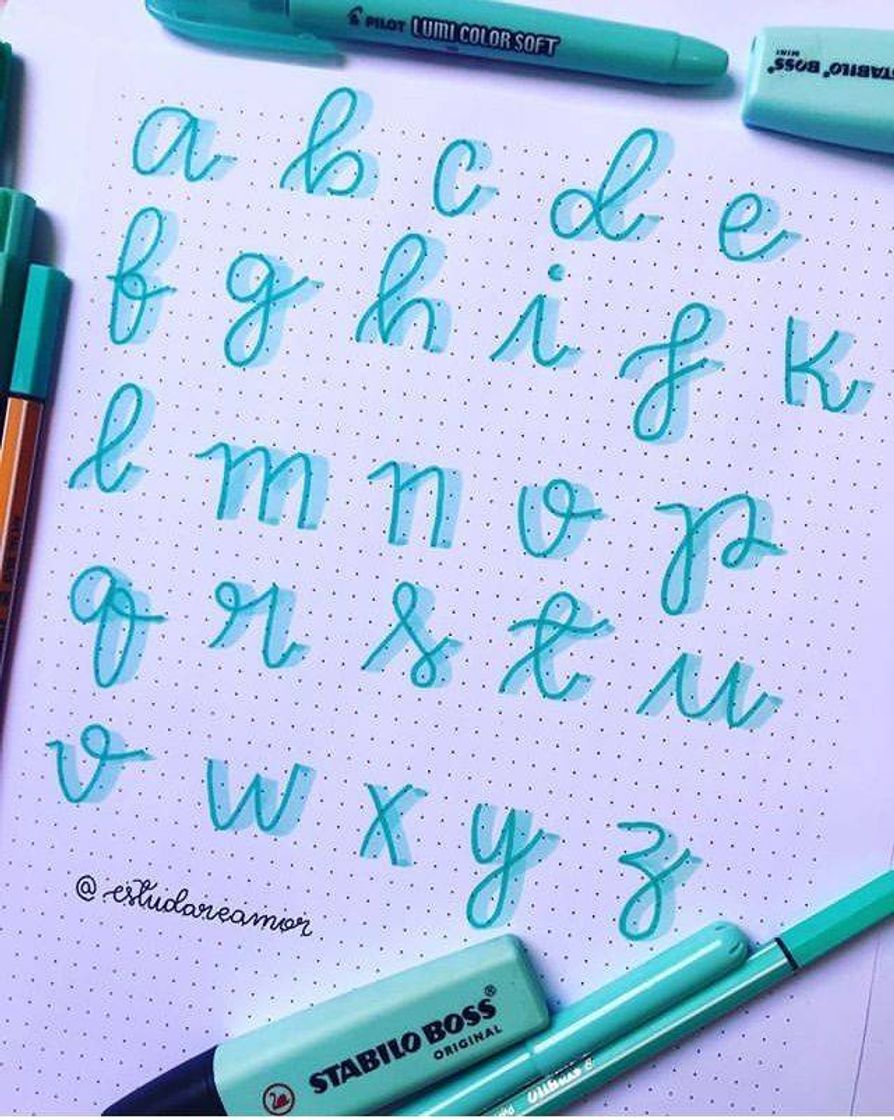 PILOT LUMI COLOR SOFT
STABILO BOSS®
MINI
a b c d e
f g h i j k
l m n o p
q r s t u
v w x y z
@estudareamor
STABILO BOSS®
ORIGINAL